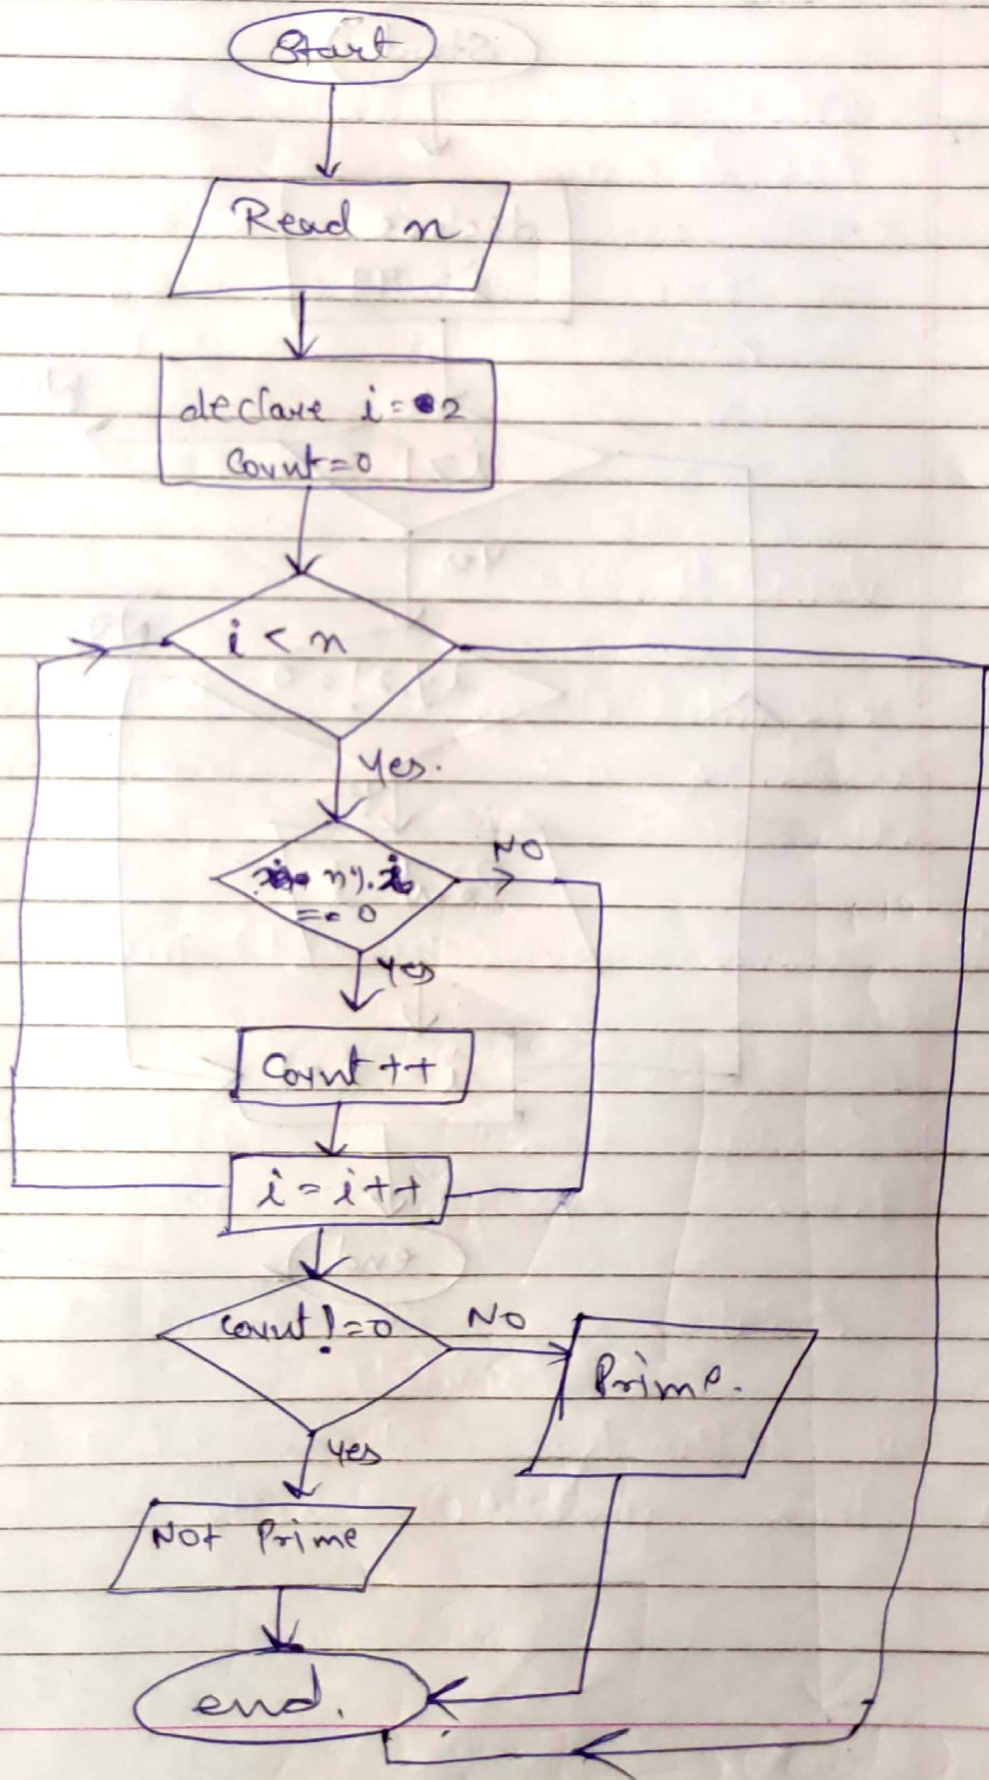 Start
Read n
declare i = 2
Count=0
i < n
Yes.
n%.i
== 0
NO
Yes
Count ++
i = i++
count!=0
NO
Prime.
Yes
Not Prime
end.